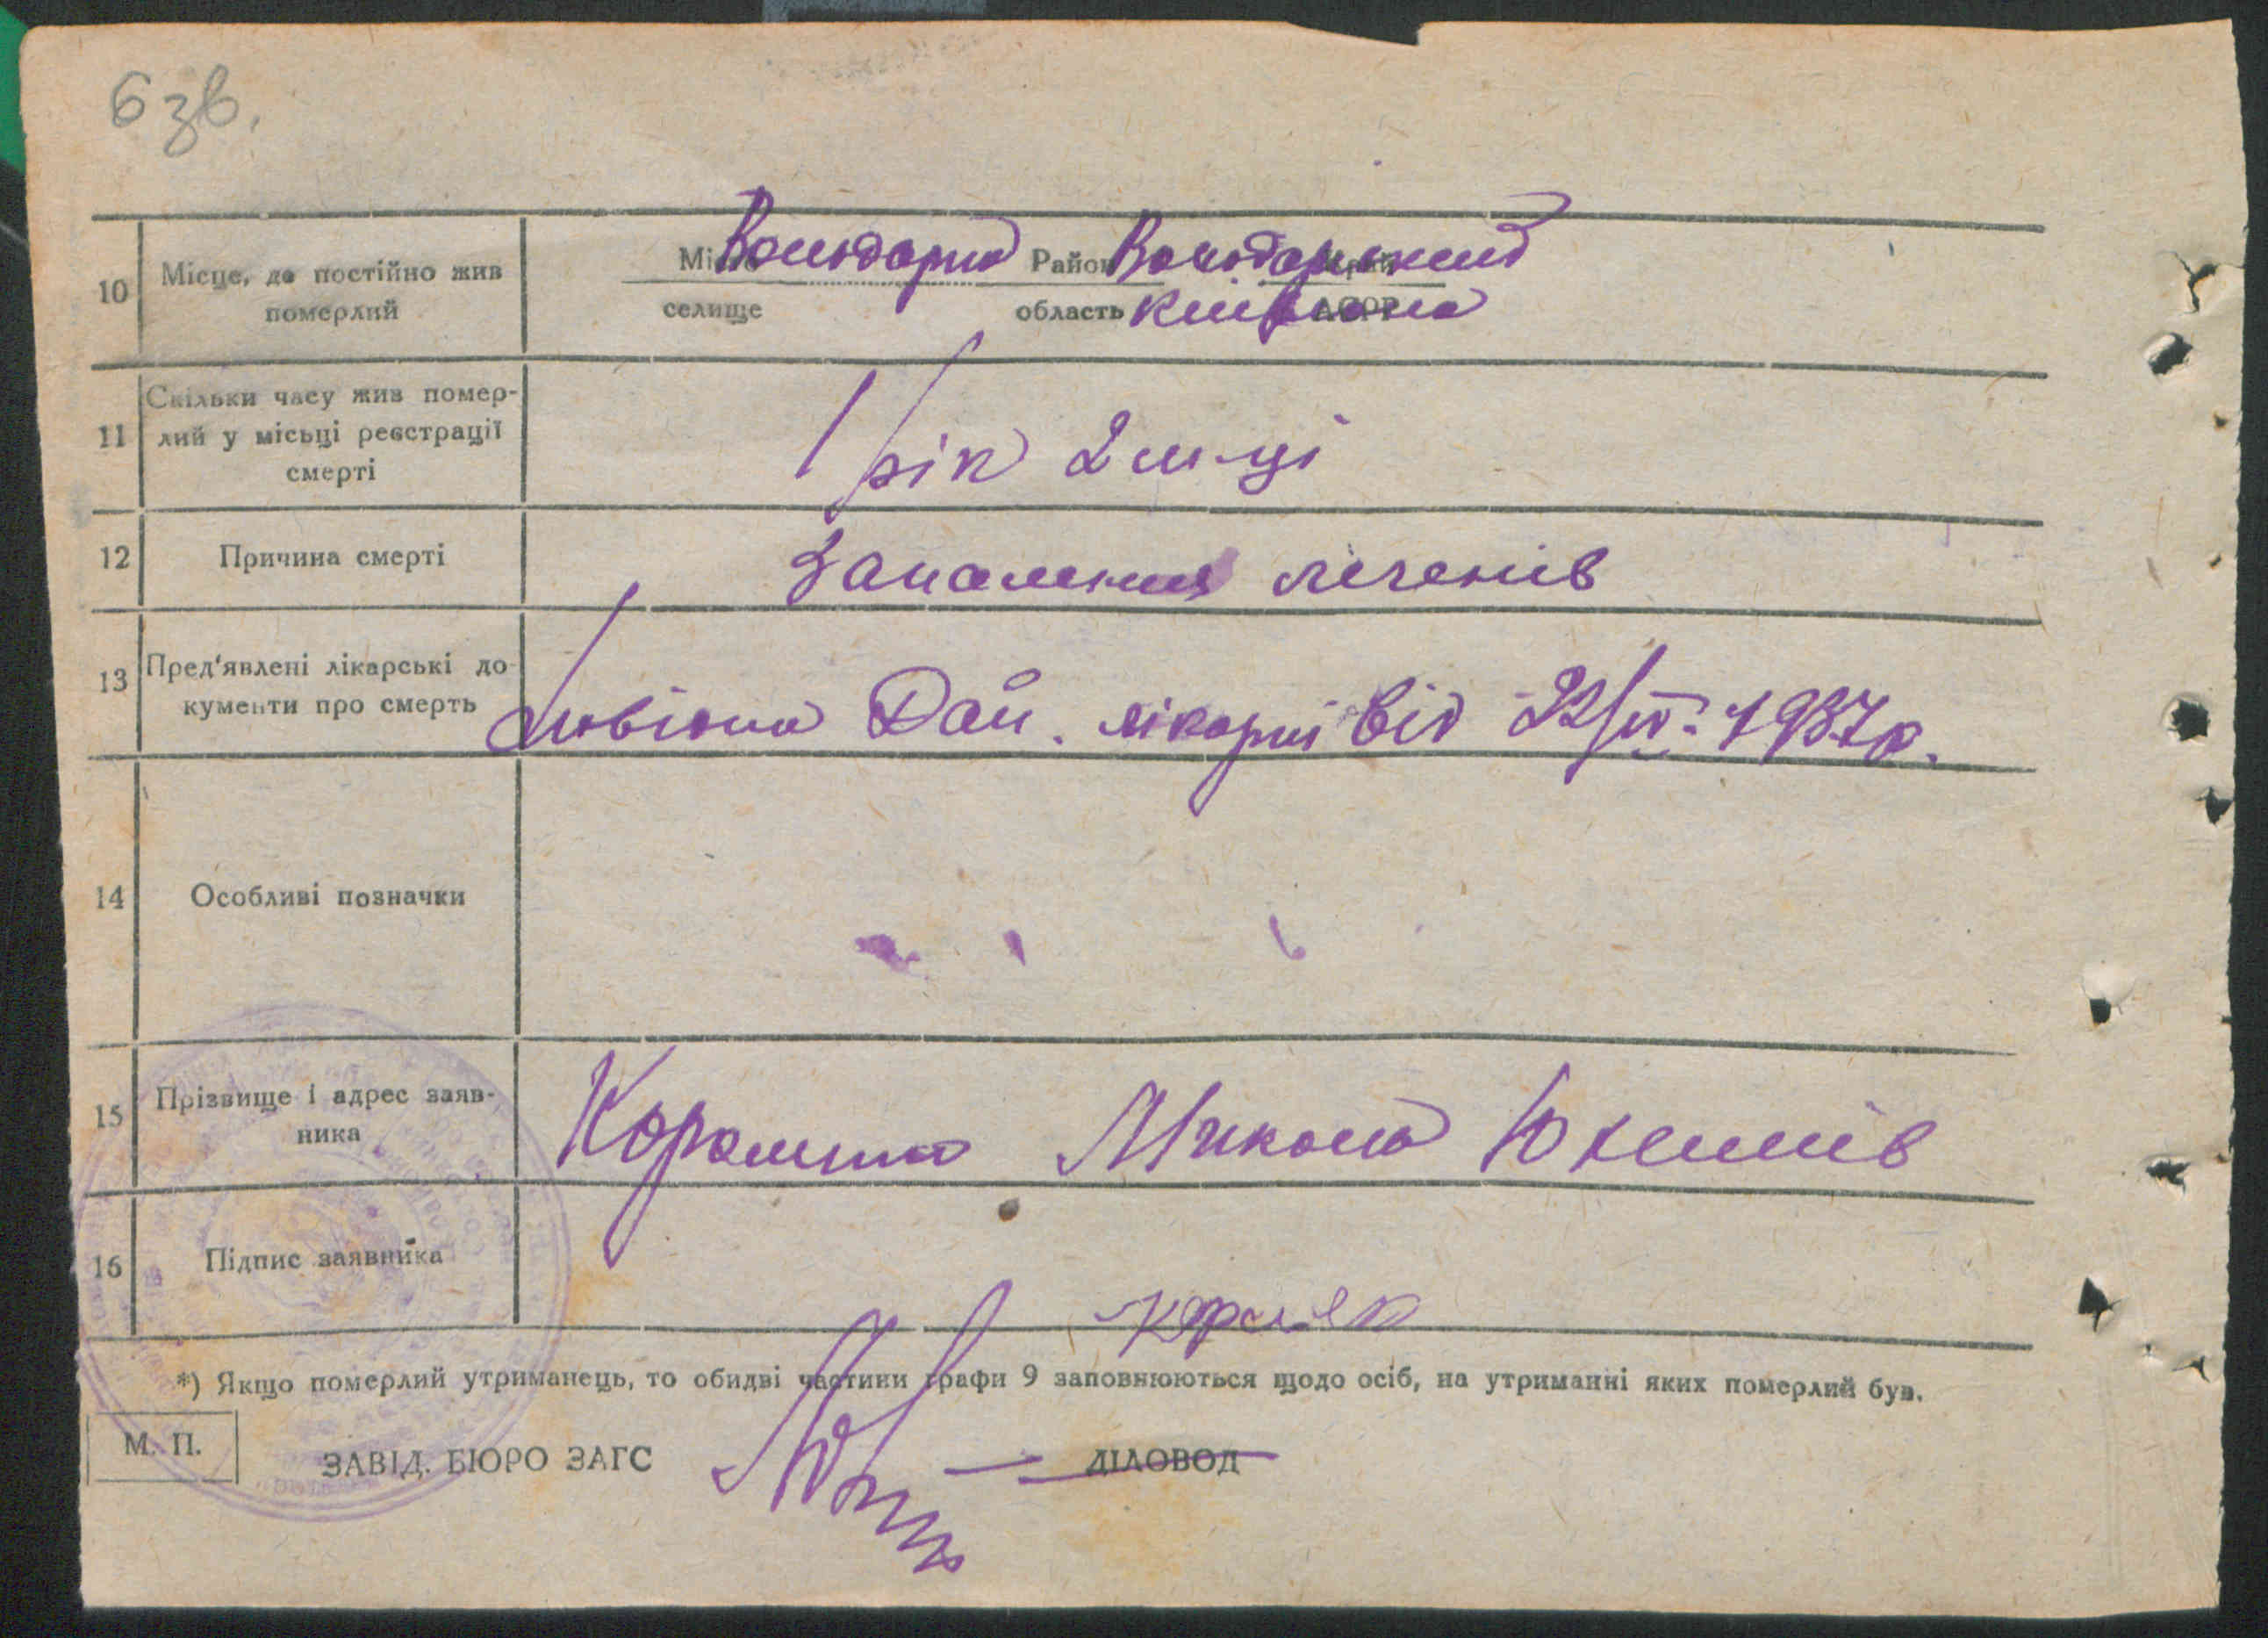 6 зв.
10 Місце, де постійно жив померлий
Місто Володарка Район Володарський Край
селище область Київська АСРР
11 Скільки часу жив помер-
лий у місьці реєстрації
смерті
1 рік 2 м-ці
12 Причина смерті
Запалення легенів
13 Пред'явлені лікарські до-
кументи про смерть
Довідка Рай. лікарні від 22/IV-1937 р.
14 Особливі позначки
15 Прізвище і адрес заяв-
ника
Микола Юхимів
16 Підпис заявника
*) Якщо померлий утриманець, то обидві частини графи 9 заповнюються щодо осіб, на утриманні яких померлий був.
М. П.
ЗАВІД. БЮРО ЗАГС
ДІЛОВОД